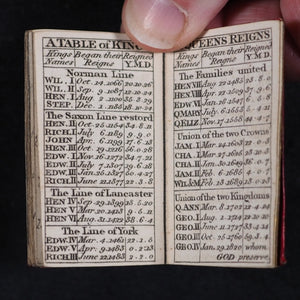 A TABLE of KING
Kings Names Began their Reigns Reigned Y.M.D.
Norman Line
WIL. I Oct. 14.1066 20.10.26
WIL. II Sep. 9.1087 12.10.24
HEN. I Aug. 2.1100 35.3.29
STEP. Dec.
The Saxon Line restord
HEN. II Oct. 25.1154
RICH. I July 6.1189 9.9.0
JOHN Apr. 6.1199 17.6.13
HEN. III Oct. 19.1216
EDW. I Nov. 16.1272
EDW. II July 7.1307
EDW. III Jan.
RICH. II June 21.1377 22.3.8
The Line of Lancaster
HEN. IV Sep. 29.1399 13.5.20
HEN. V Mar. 20.1413 9.5.11
HEN. VI Aug. 31.1422 38.6.4
The Line of York
EDW. IV Mar. 4.1461 22.1.5
EDW. V Apr. 9.1483 0.2.13
RICH. III June 22.1483 2.2.0
QUEENS REIGNS
Kings Names Began their Reigns Reigned Y.M.D.
The Families united
HEN. VII Aug. 22.1485 23.8.0
HEN. VIII Apr. 22.1509
EDW. VI Jan. 28.1547 6.5.8
Q. MARY July 6.1553 5.4.11
Q. ELIZ. Nov. 17.1558 44.4.7
Union of the two Crowns
JAM. I Mar. 24.1603 22.0.3
CHA. I Mar. 27.1625 23.10.3
CHA. II Jan. 30.1649 36.0.7
JAM. II Feb. 6.1685 4.0.7
WIL. & M. Feb. 13.1689
Union of the two Kingdoms
Q. ANN Mar. 8.1702
GEO. I Aug. 1.1714
GEO. II June 11.1727 33.4.14
GEO. III Oct. 25.1760 59.3.4
GEO. IV Jan. 29.1820 whom
GOD preserve